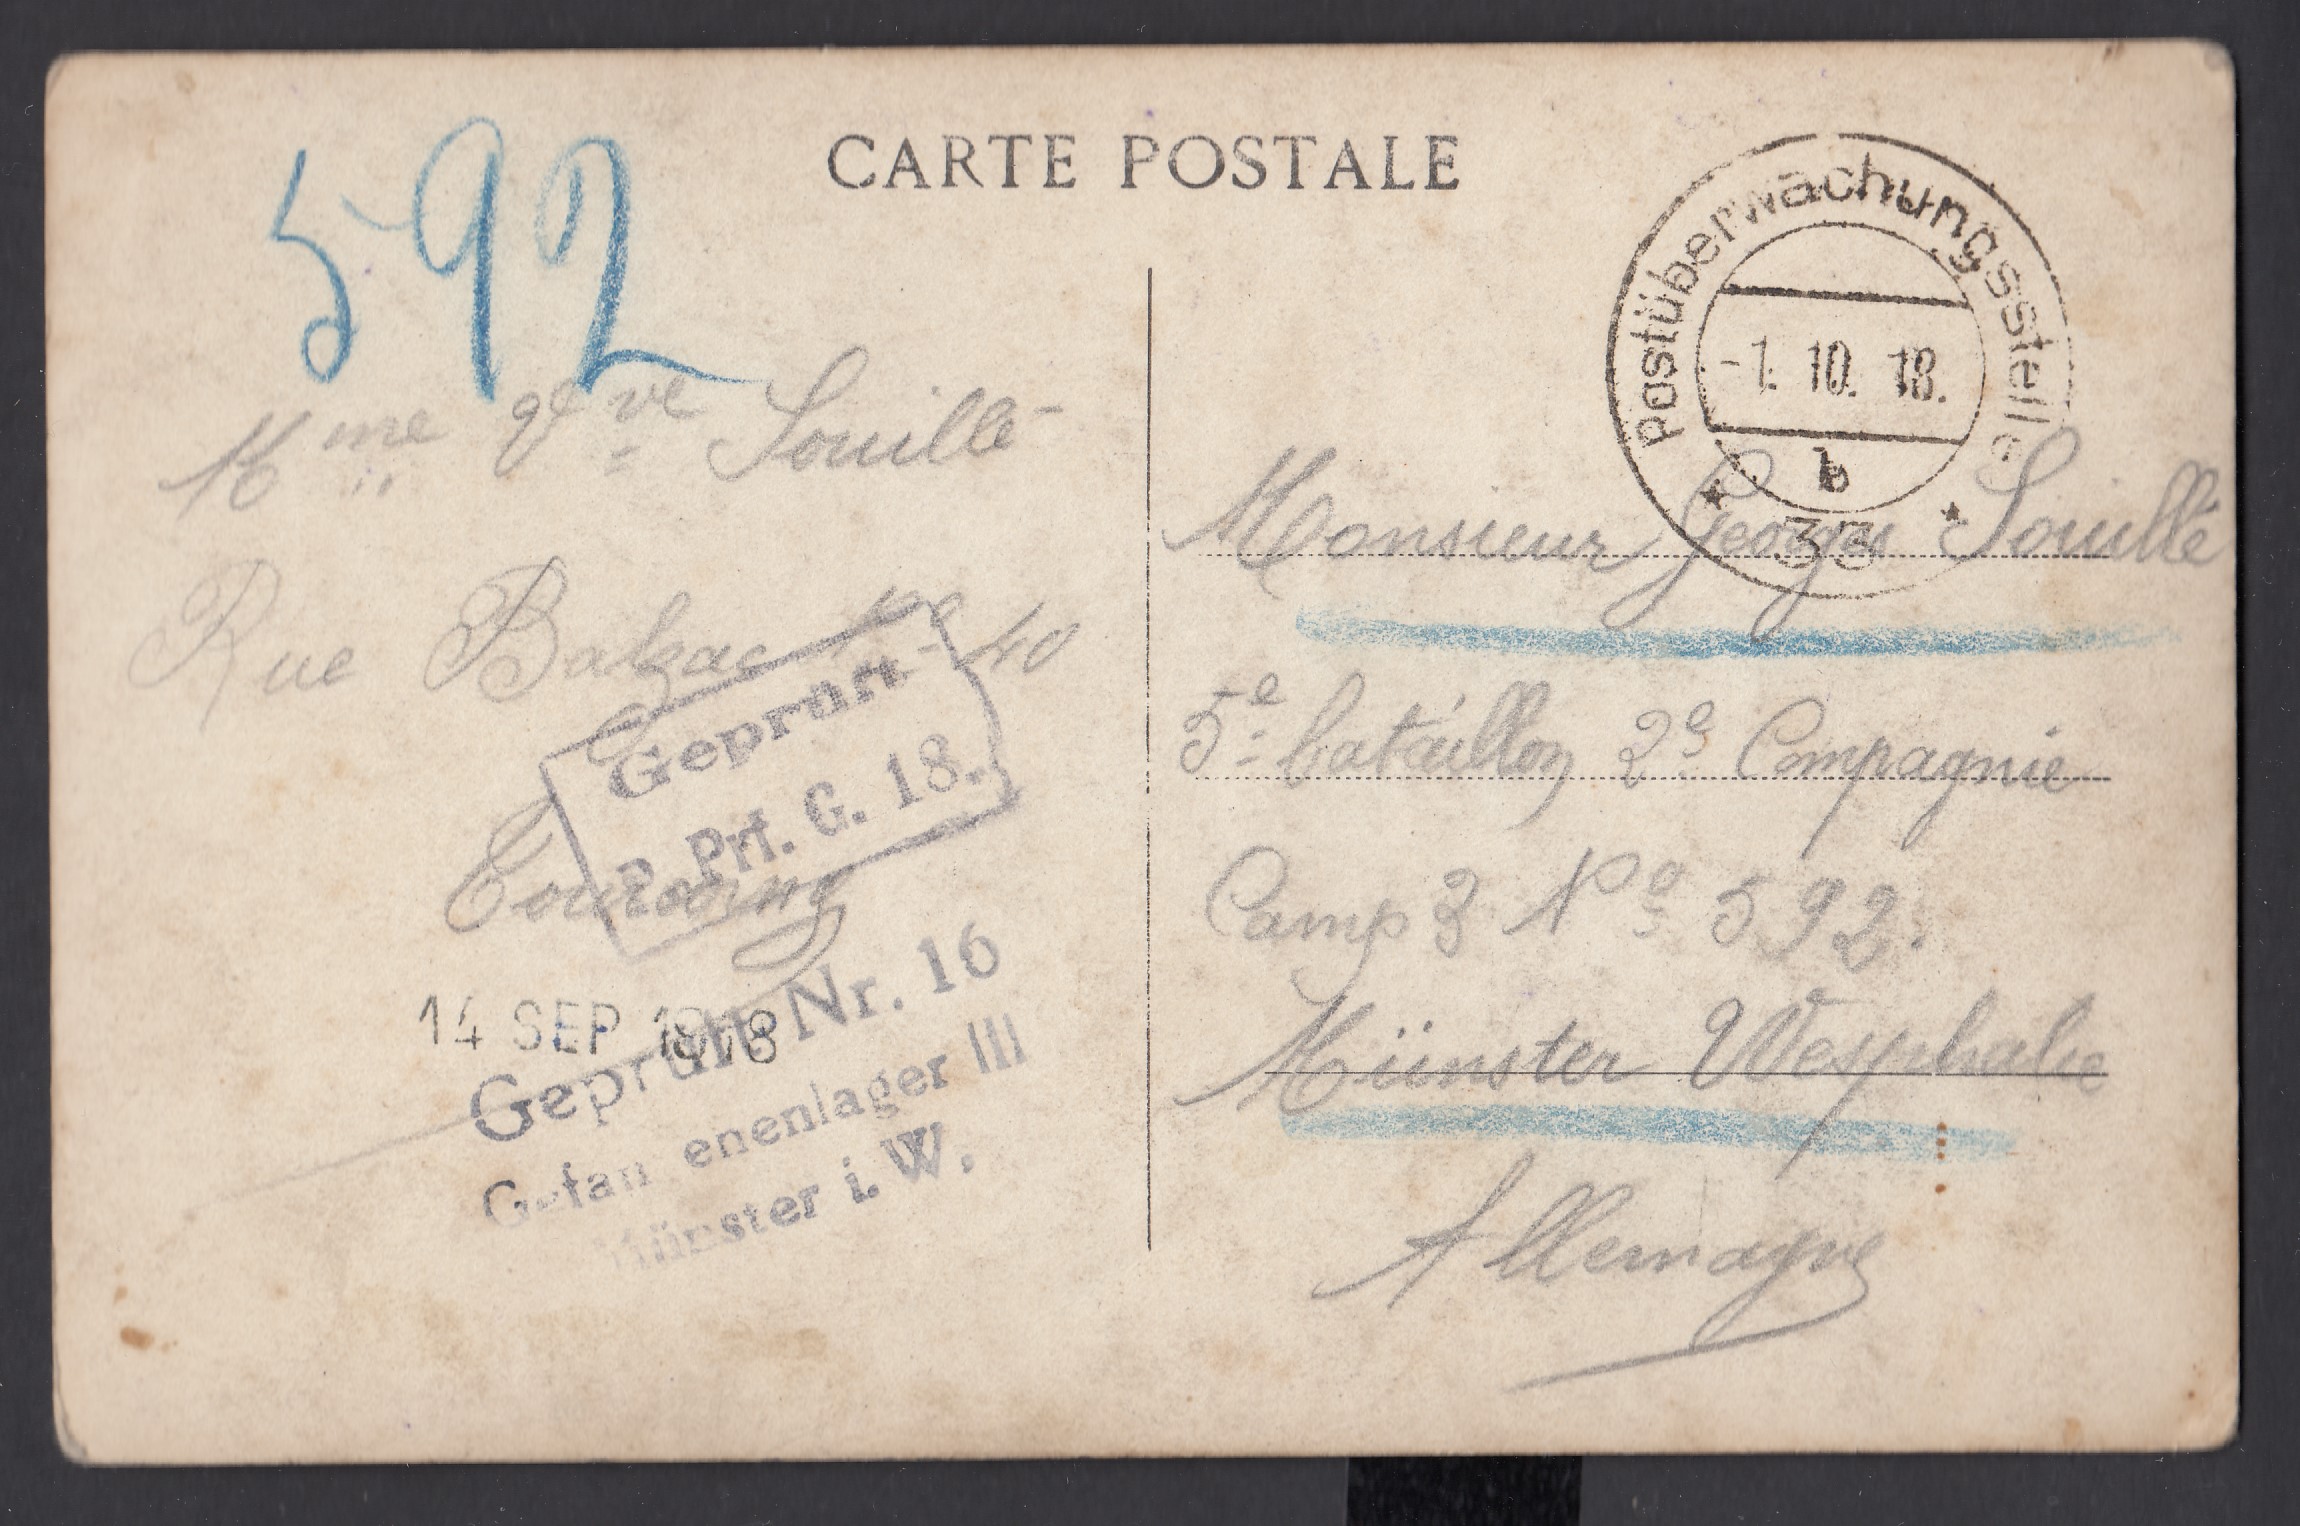 CARTE POSTALE
592
Postüberwachungsstelle
-1. 10. 18.
b
33
Mme Souillé
Rue Balzac no 40
Tourcoing
Geprüft
P. Prf. G. 18.
14 SEP 1918
Geprüft Nr. 16
Gefangenenlager III
Münster i. W.
Monsieur Georges Souillé
5e bataillon 2e Compagnie
Camp 3 No 592.
Münster Westphalie
Allemagne